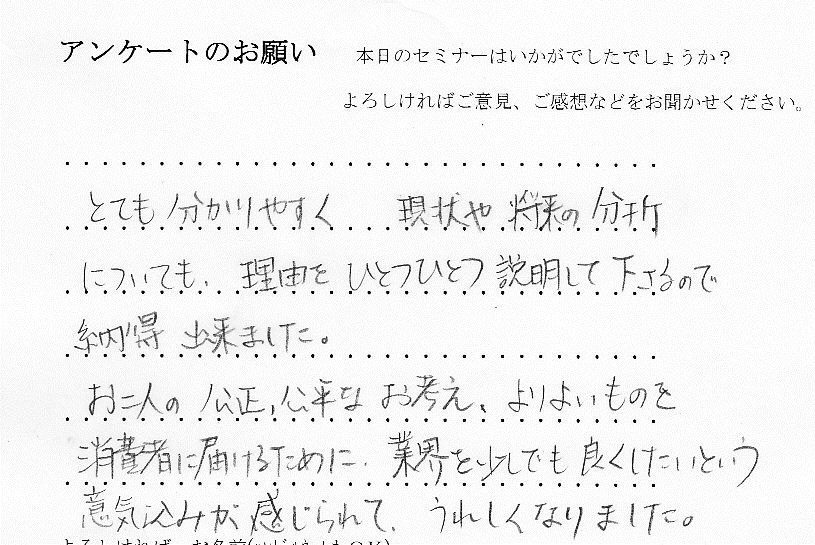 アンケートのお願い　本日のセミナーはいかがでしたでしょうか？
よろしければご意見、ご感想などをお聞かせください。
とても分かりやすく　現状や将来の分析
についても、理由をひとつひとつ説明して下さるので
納得出来ました。
お二人の公正,公平なお考え、よりよいものを
消費者に届けるために、業界を少しでも良くしたいという
意気込みが感じられて、うれしくなりました。